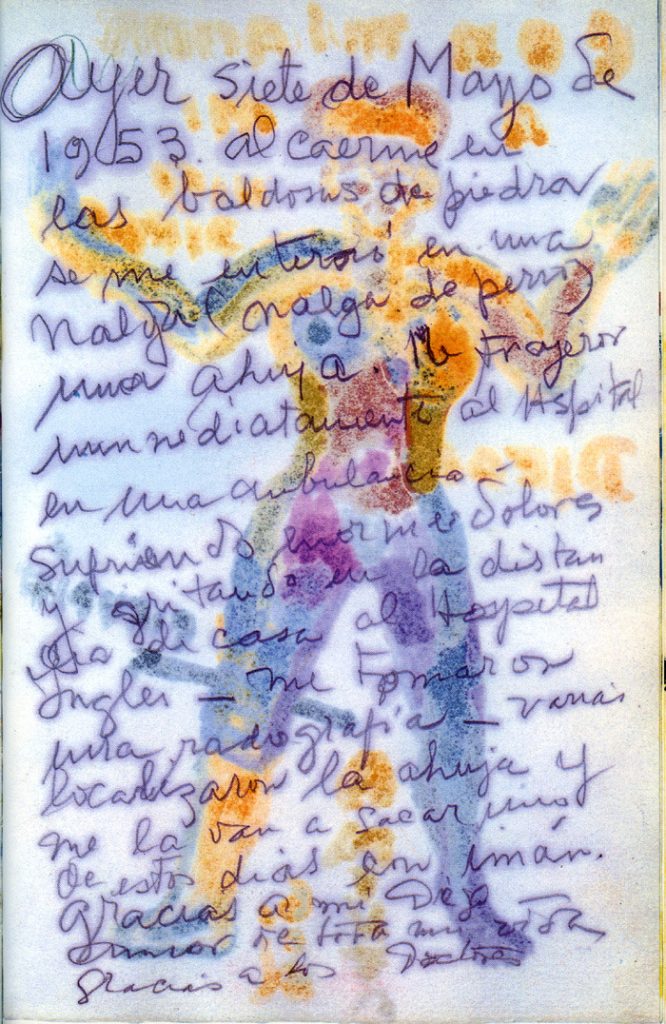 Ayer siete de Mayo de
1953. al caerme en
las baldosas de piedra
se me enterró en una
nalga (nalga de perro)
una ahuja. Me trajeron
inmediatamente al Hospital
en una ambulancia.
sufriendo enormes dolores
y gritando en la distan
cia de casa al Hospital
Ingles – me tomaron
una radiografía – varias
localizaron la ahuja y
me la van a sacar uno
de estos dias con imán.
Gracias a mi Diego
amor de toda mi vida
gracias a los Doctores